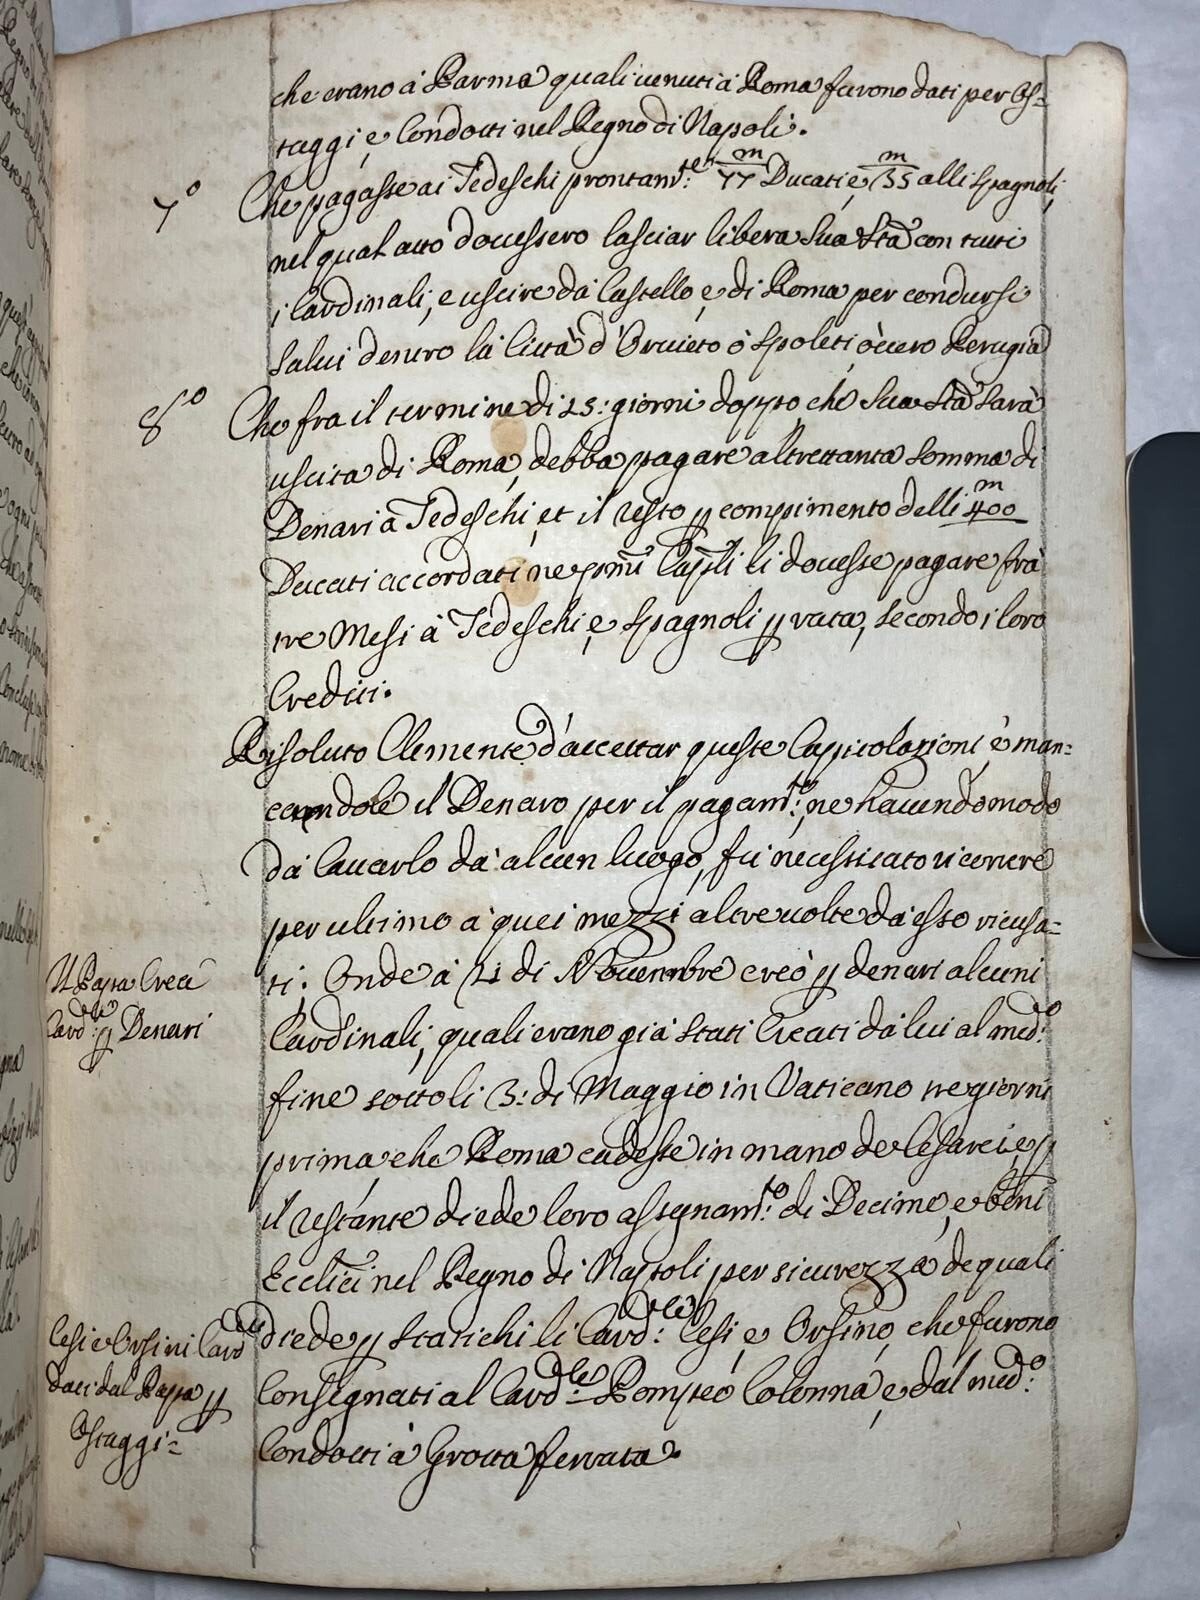 che erano à Parma quali uenuti à Roma furono dati per Os=
taggi, e Condotti nel Regno di Napoli.
7.º Che pagasse ai Tedeschi prontam.te 77 m Ducati, e 35 m alli Spagnoli,
nel qual atto douessero lasciar libera Sua Stà con tutti
i Cardinali, e uscire da Castello, e di Roma per condursi
salui dentro la Città d'Oruieto ò Spoleti, òuero Perugia
8.º Che fra il termine di 15: giorni doppo, che Sua Stà sarà
uscita di Roma, debba pagare altrettanta somma di
Denari à Tedeschi, et il resto p compimento delli 400 m
Ducati accordati ne primi Capli li douesse pagare frà
tre Mesi à Tedeschi, e Spagnoli p rata, secondo i loro
Crediti.
Risoluto Clemente d'accettar queste Capitolazioni, e man=
candole il Denaro per il pagam.to, ne hauendo modo
da Cauarlo da alcun luogo, fu necessitato ricorrere
per ultimo à quei mezzi altre uolte da esso ricusa=
ti. Onde à 21 di Nouembre creò p denari alcuni
Il Papa Crea
Card.li p Denari
Cardinali, quali erano già stati Creati da lui al med.º
fine sotto li 3: di Maggio in Vaticano tre giorni
prima che Roma cadesse in mano de Cesarei, e p
il restante diede loro assegnam.to di Decime, e beni
Ecclici nel Regno di Napoli per sicurezza de quali
diede p Statichi li Card.li Cesi, e Orsino, che furono
Cesi e Orsini Card.li
dati dal Papa p
Ostaggi=
Consegnati al Card.le Pompeo Colonna, e dal med.º
Condotti à Grotta ferrata.